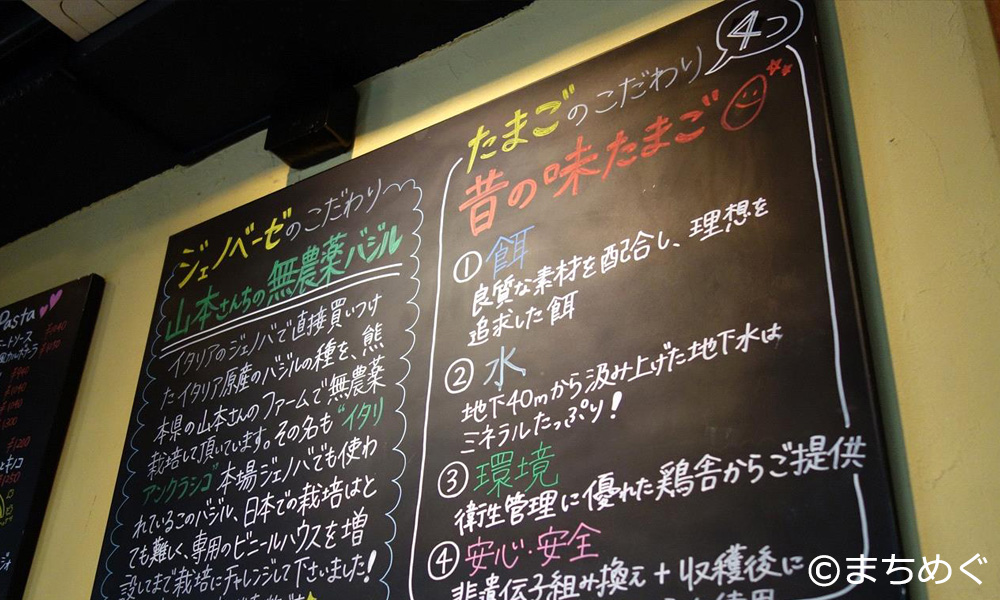 Pasta
ジェノベーゼのこだわり
山本さんちの無農薬バジル
イタリアのジェノバで直接買いつけ
たイタリア原産のバジルの種を、熊
本県の山本さんのファームで無農薬
栽培して頂いています。その名も“イタリ
アンクラシコ”本場ジェノバでも使わ
れているこのバジル、日本での栽培はと
ても難しく、専用のビニールハウスを増
設してまで栽培にチャレンジして下さいました!
たまごのこだわり
4つ
昔の味たまご
①餌
良質な素材を配合し、理想を
追求した餌
②水
地下40mから汲み上げた地下水は
ミネラルたっぷり!
③環境
衛生管理に優れた鶏舎からご提供
④安心・安全
非遺伝子組み換え+収穫後に
©まちめぐ